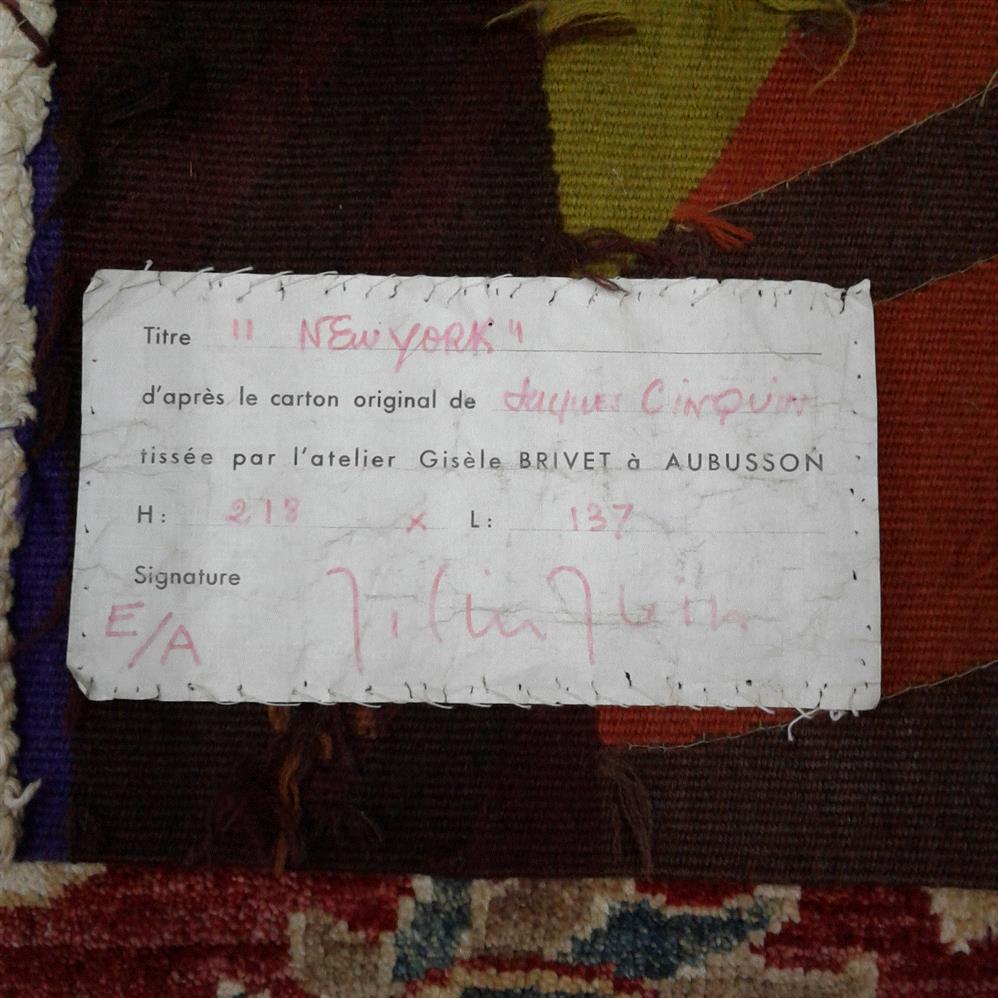 Titre " NEW YORK"
d'après le carton original de Jacques CINQUIN
tissée par l'atelier Gisèle BRIVET à AUBUSSON
H: 218 x L: 137
Signature
E/A